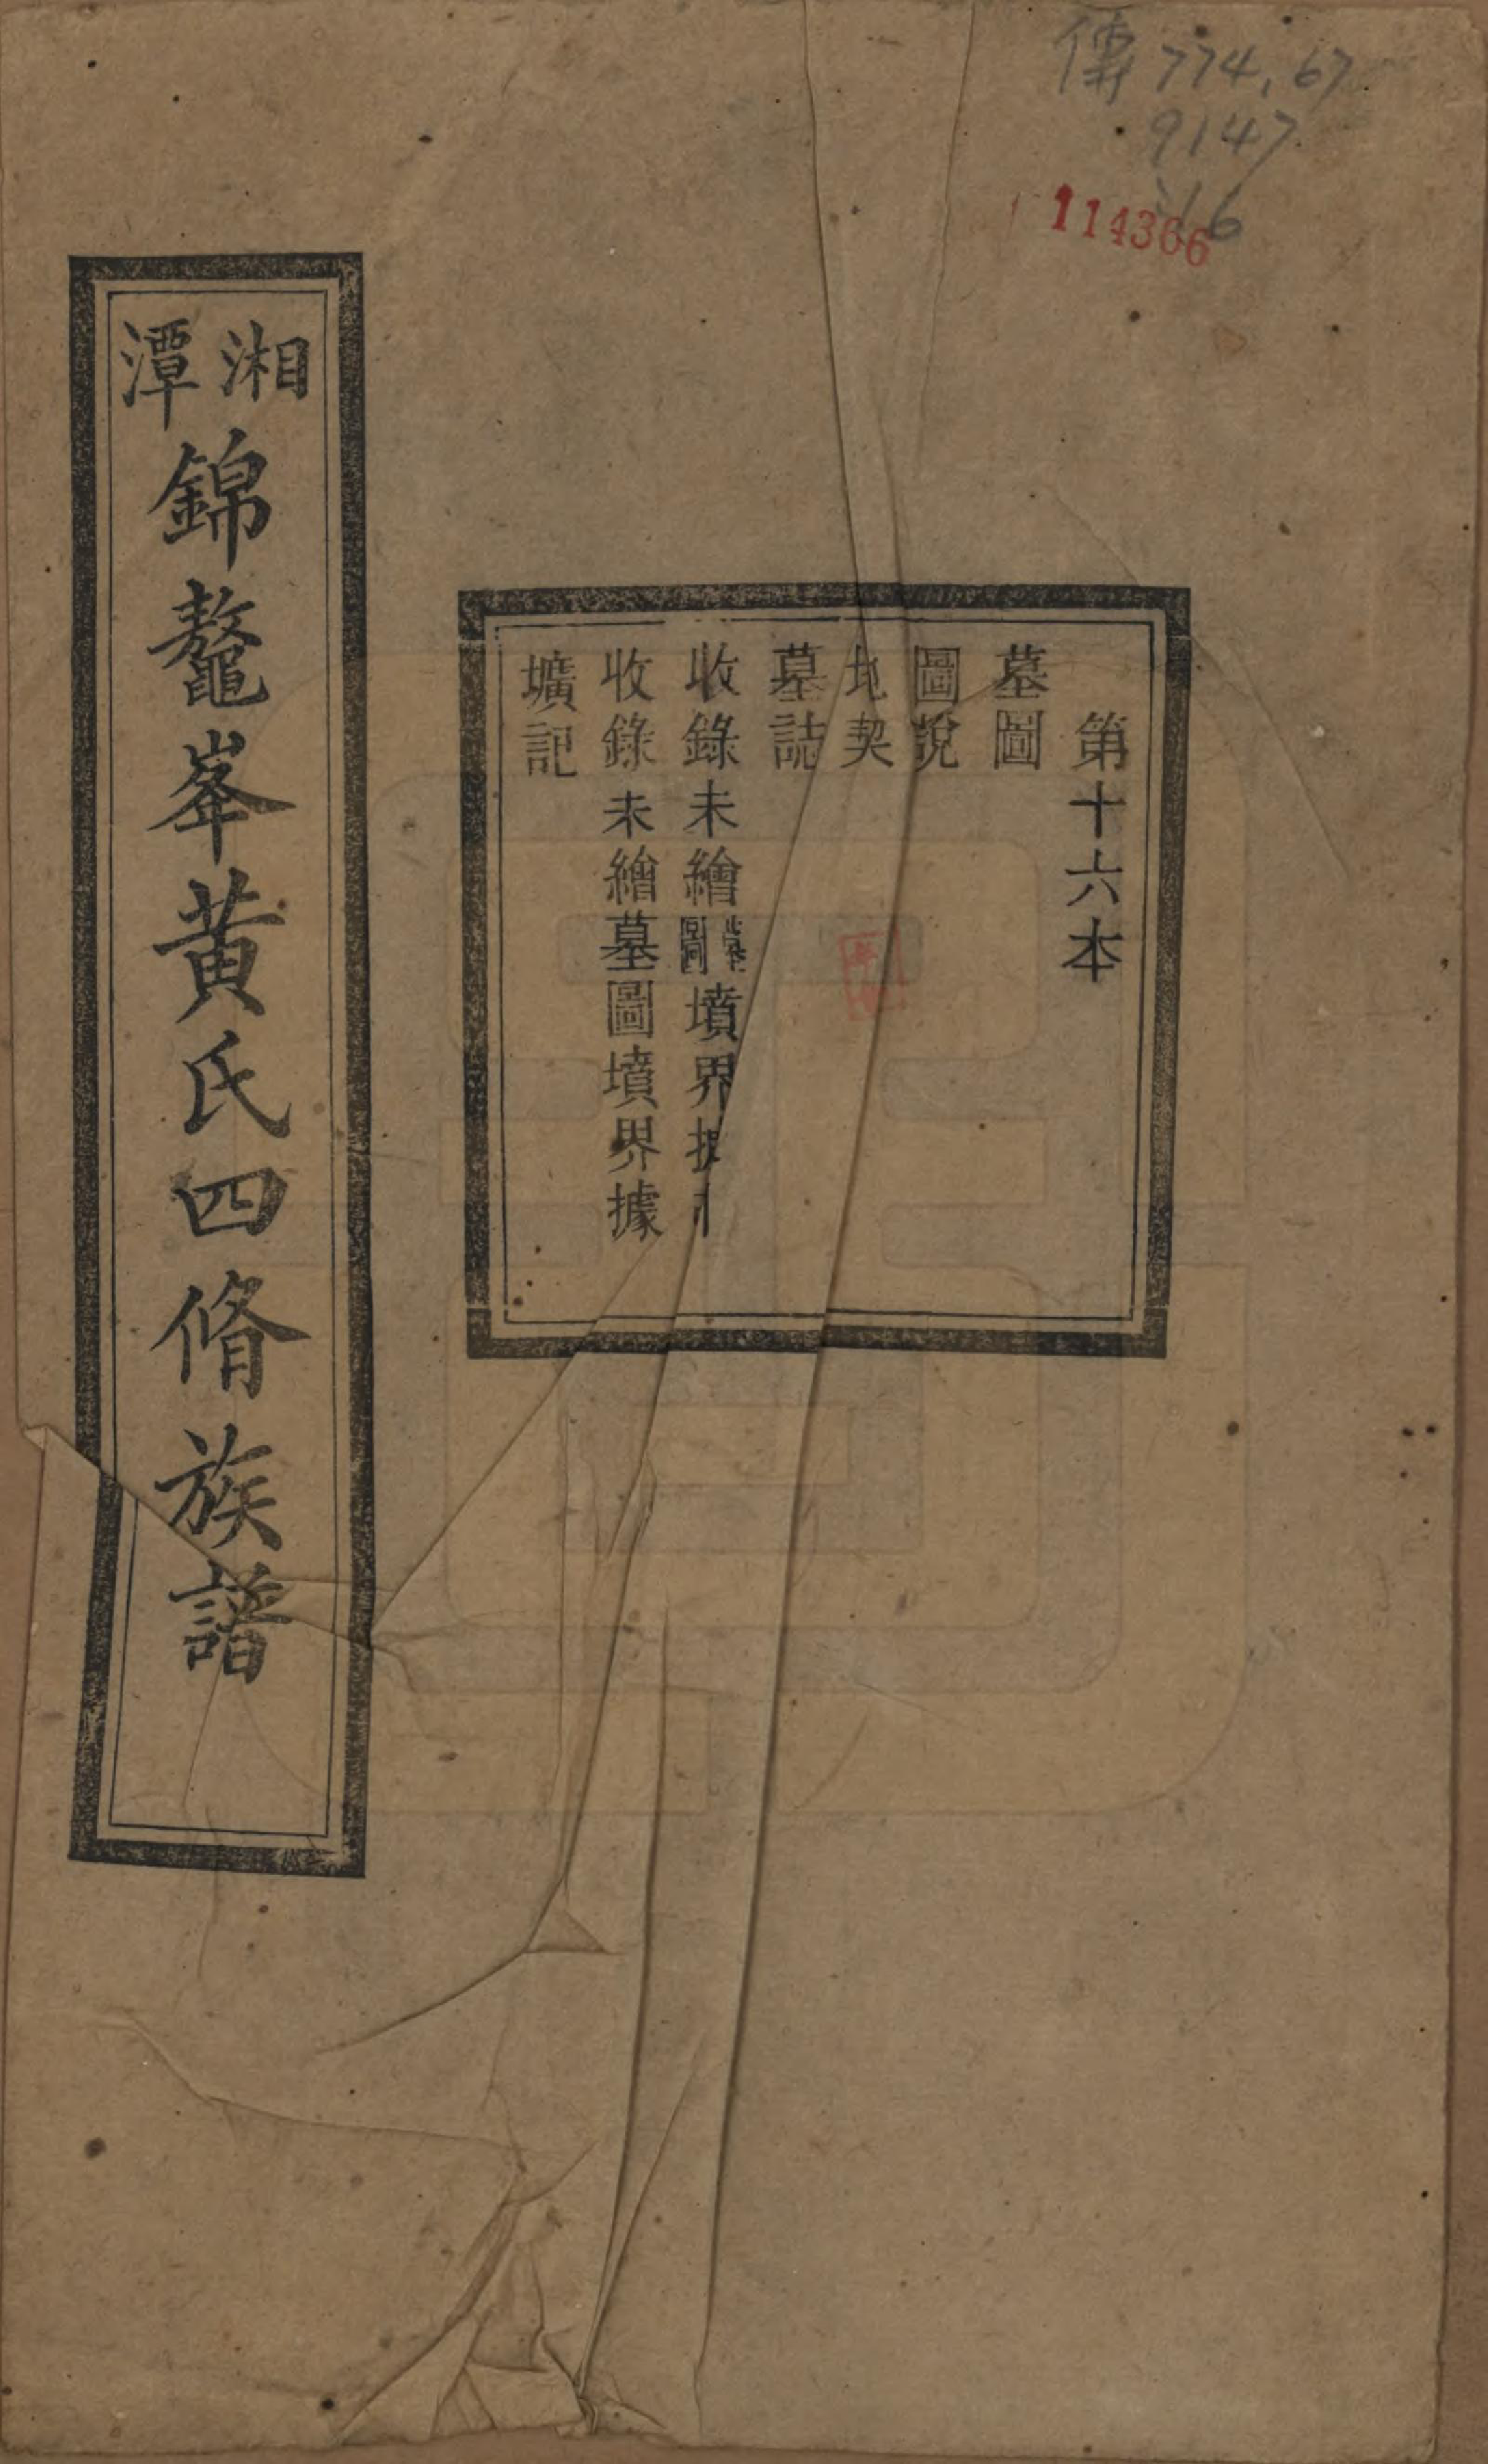 傳774.67
9147
:16
114366
第十六本
墓圖
圖說
地契
墓誌
收錄未繪墓圖墳界
收錄未繪墓圖墳界據
壙記
湘潭錦鼇峯黃氏四脩族譜